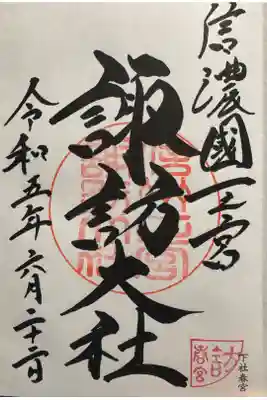 信濃國一之宮
諏訪大社
令和五年六月二十
下社春宮
春宮